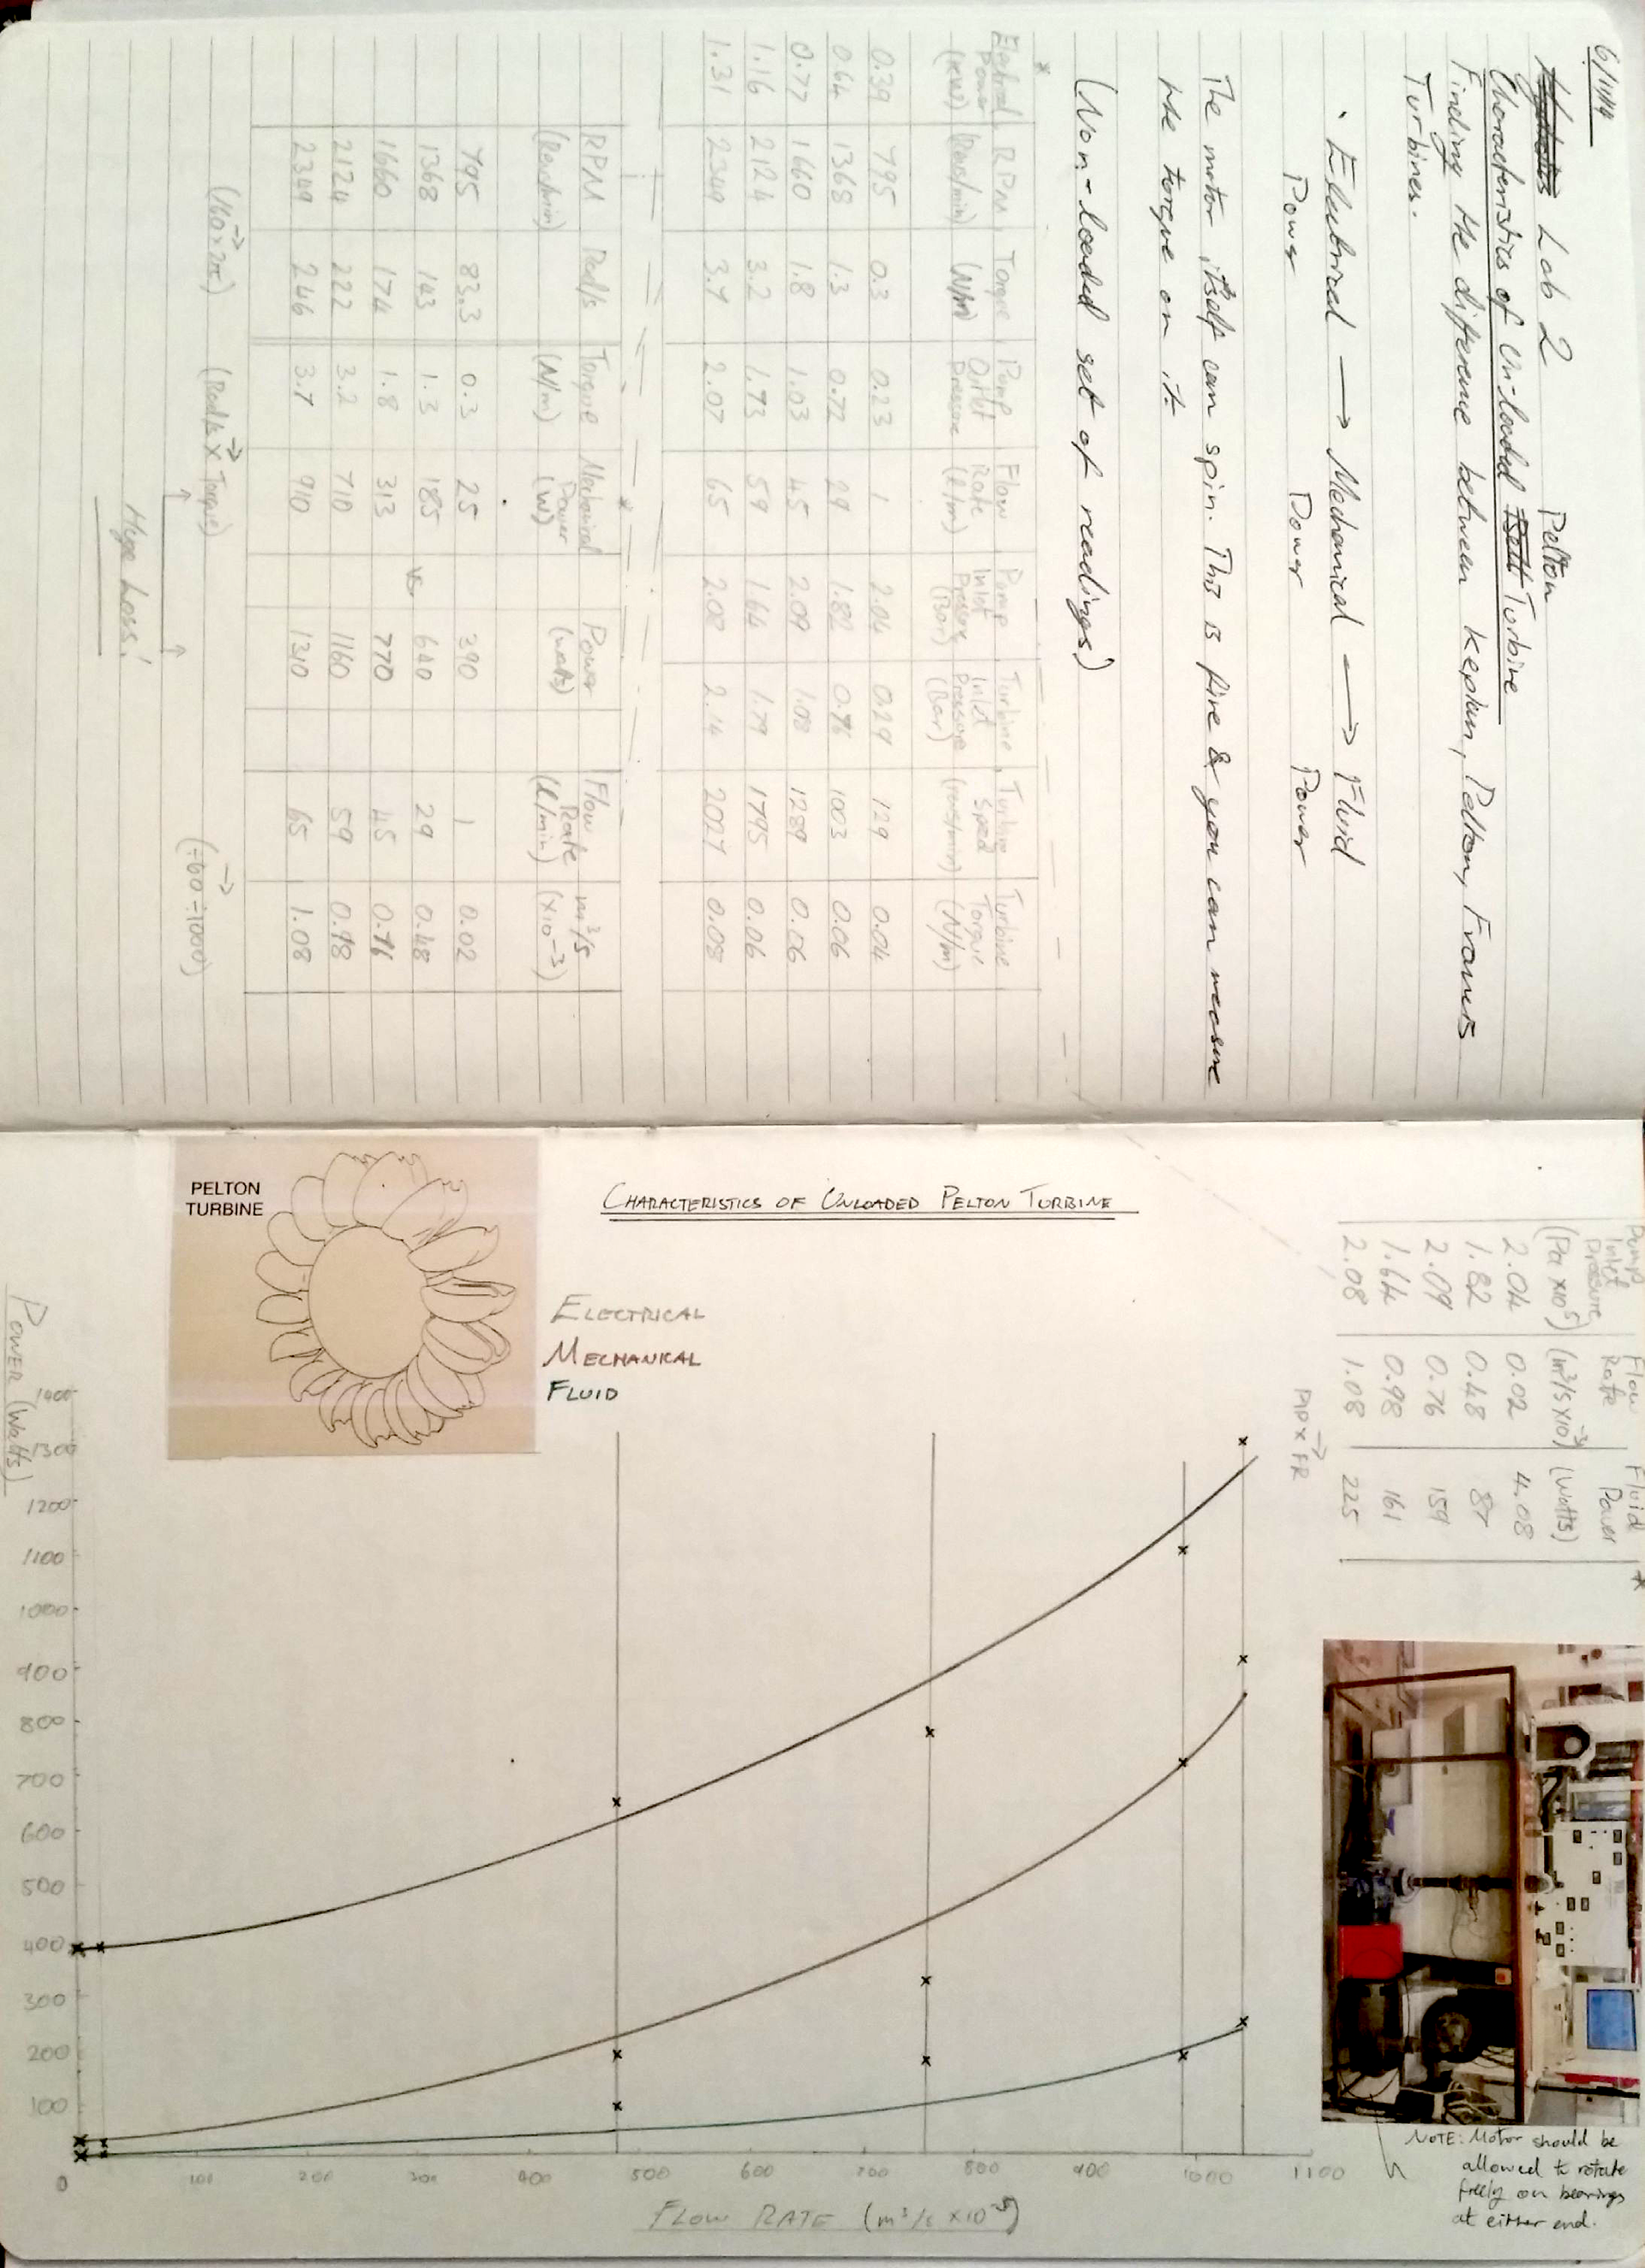 6/11/19
Lab 2 Pelton
Characteristics of Un-loaded Turbine
Finding the difference between Keplan, Pelton, Francis
Turbines.
· Electrical → Mechanical → Fluid
Power Power Power
The motor itself can spin. This is fine & you can measure
the torque on it.
(Non-loaded set of readings)
*
Electrical Power (kW) RPM (Revs/min) Torque (N/m) Pump Outlet Pressure Flow Rate (l/m) Pump Inlet Pressure (Bar) Turbine Inlet Pressure (Bar) Turbine Speed (revs/min) Turbine Torque (N/m)
0.39 795 0.3 0.23 1 2.04 0.29 129 0.04
0.64 1368 1.3 0.72 29 1.82 0.76 1003 0.06
0.77 1660 1.8 1.03 45 2.09 1.08 1289 0.06
1.16 2124 3.2 1.73 59 1.64 1.79 1795 0.06
1.31 2349 3.7 2.07 65 2.08 2.14 2027 0.08
*
RPM (Revs/min) Rad/s Torque (N/m) Mechanical Power (W) Power (watts) Flow Rate (l/min) m³/s (x10⁻³)
795 83.3 0.3 25 390 1 0.02
1368 143 1.3 185 vs 640 29 0.48
1660 174 1.8 313 770 45 0.76
2124 222 3.2 710 1160 59 0.98
2349 246 3.7 910 1310 65 1.08
(÷60 x 2π) (Rad/s x Torque) (÷60 ÷1000)
Huge Loss!
PELTON
TURBINE
CHARACTERISTICS OF UNLOADED PELTON TURBINE
ELECTRICAL
MECHANICAL
FLUID
POWER (Watts)
1400
1300
1200
1100
1000
900
800
700
600
500
400
300
200
100
0 100 200 300 400 500 600 700 800 900 1000 1100
FLOW RATE
Pump Inlet Pressure (Pa x10⁵) Flow Rate (m³/s x10⁻³) Fluid Power (Watts) *
2.04 0.02 4.08
1.82 0.48 87
2.09 0.76 159
1.64 0.98 161
2.08 1.08 225
PIP x FR
NOTE: Motor should be
allowed to rotate
freely on bearings
at either end.